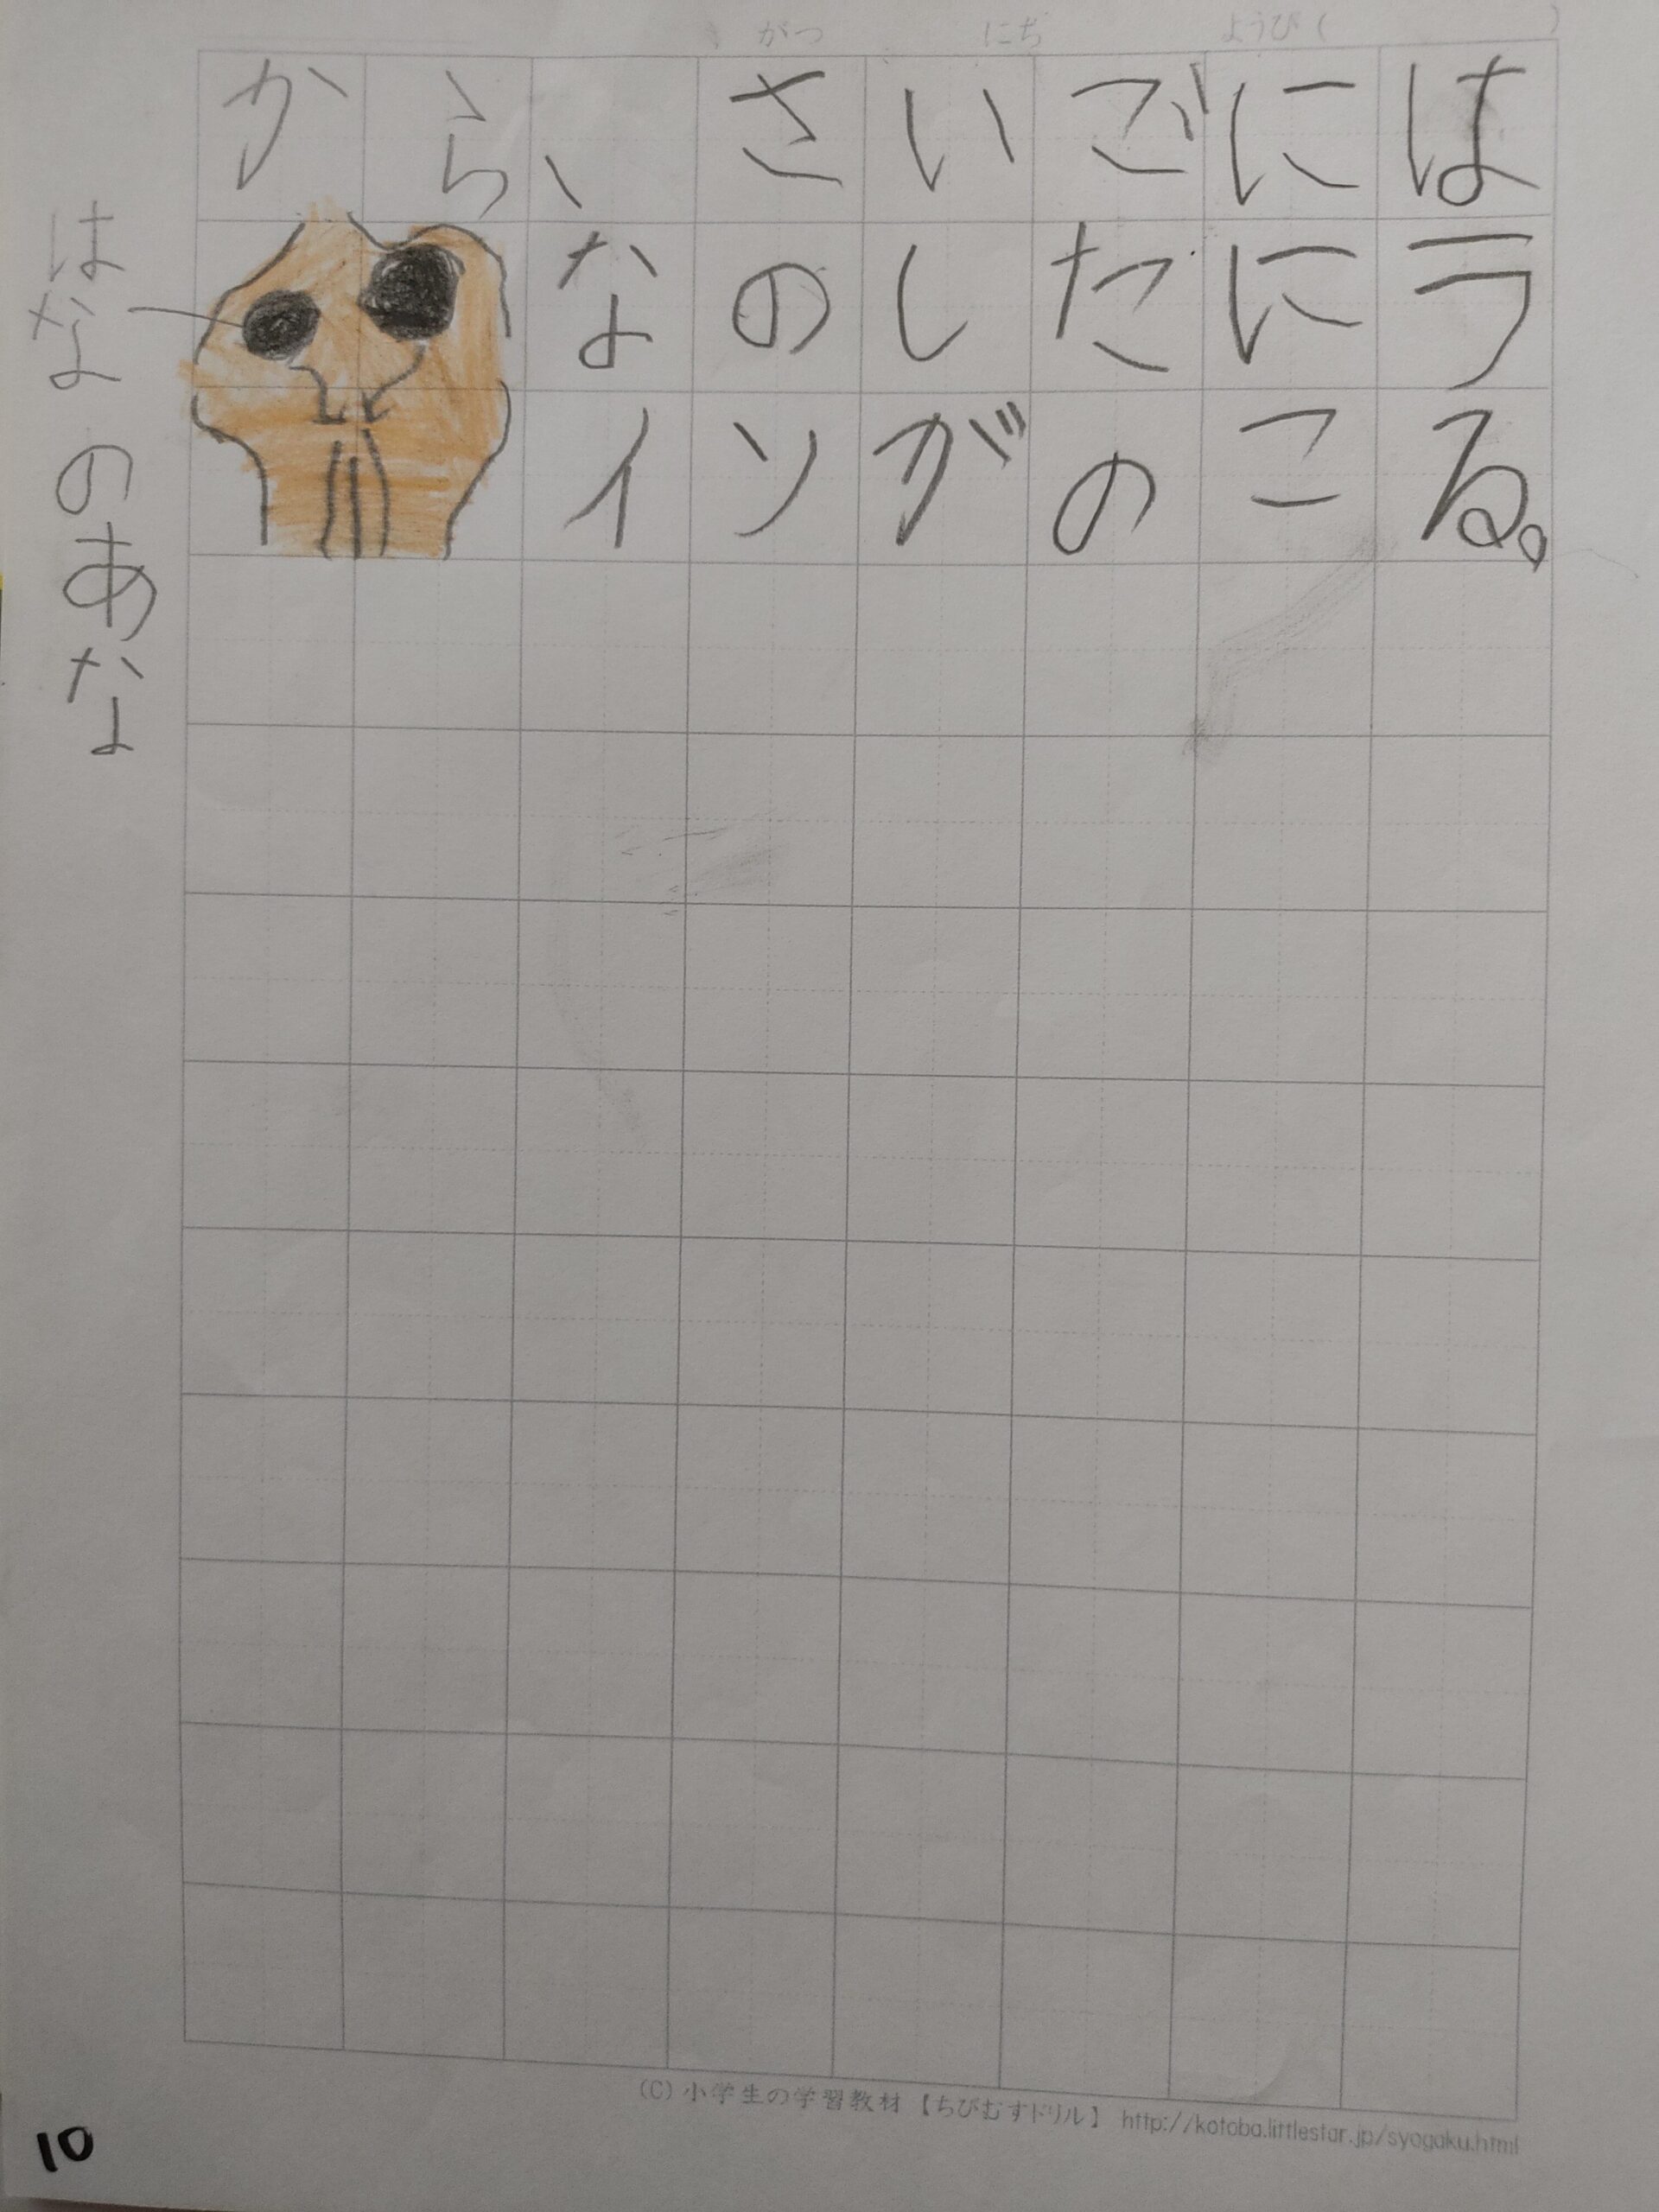 がつ にち ようび( )
から、さいごには
なのしたにラ
インがのこる。
はなのあな
(C) 小学生の学習教材【ちびむすドリル】 http://kotoba.littlestar.jp/syogaku.html
10